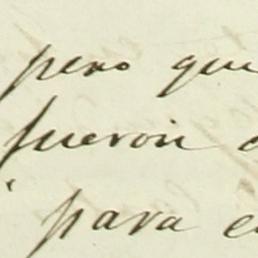 pero que
fueron
para e